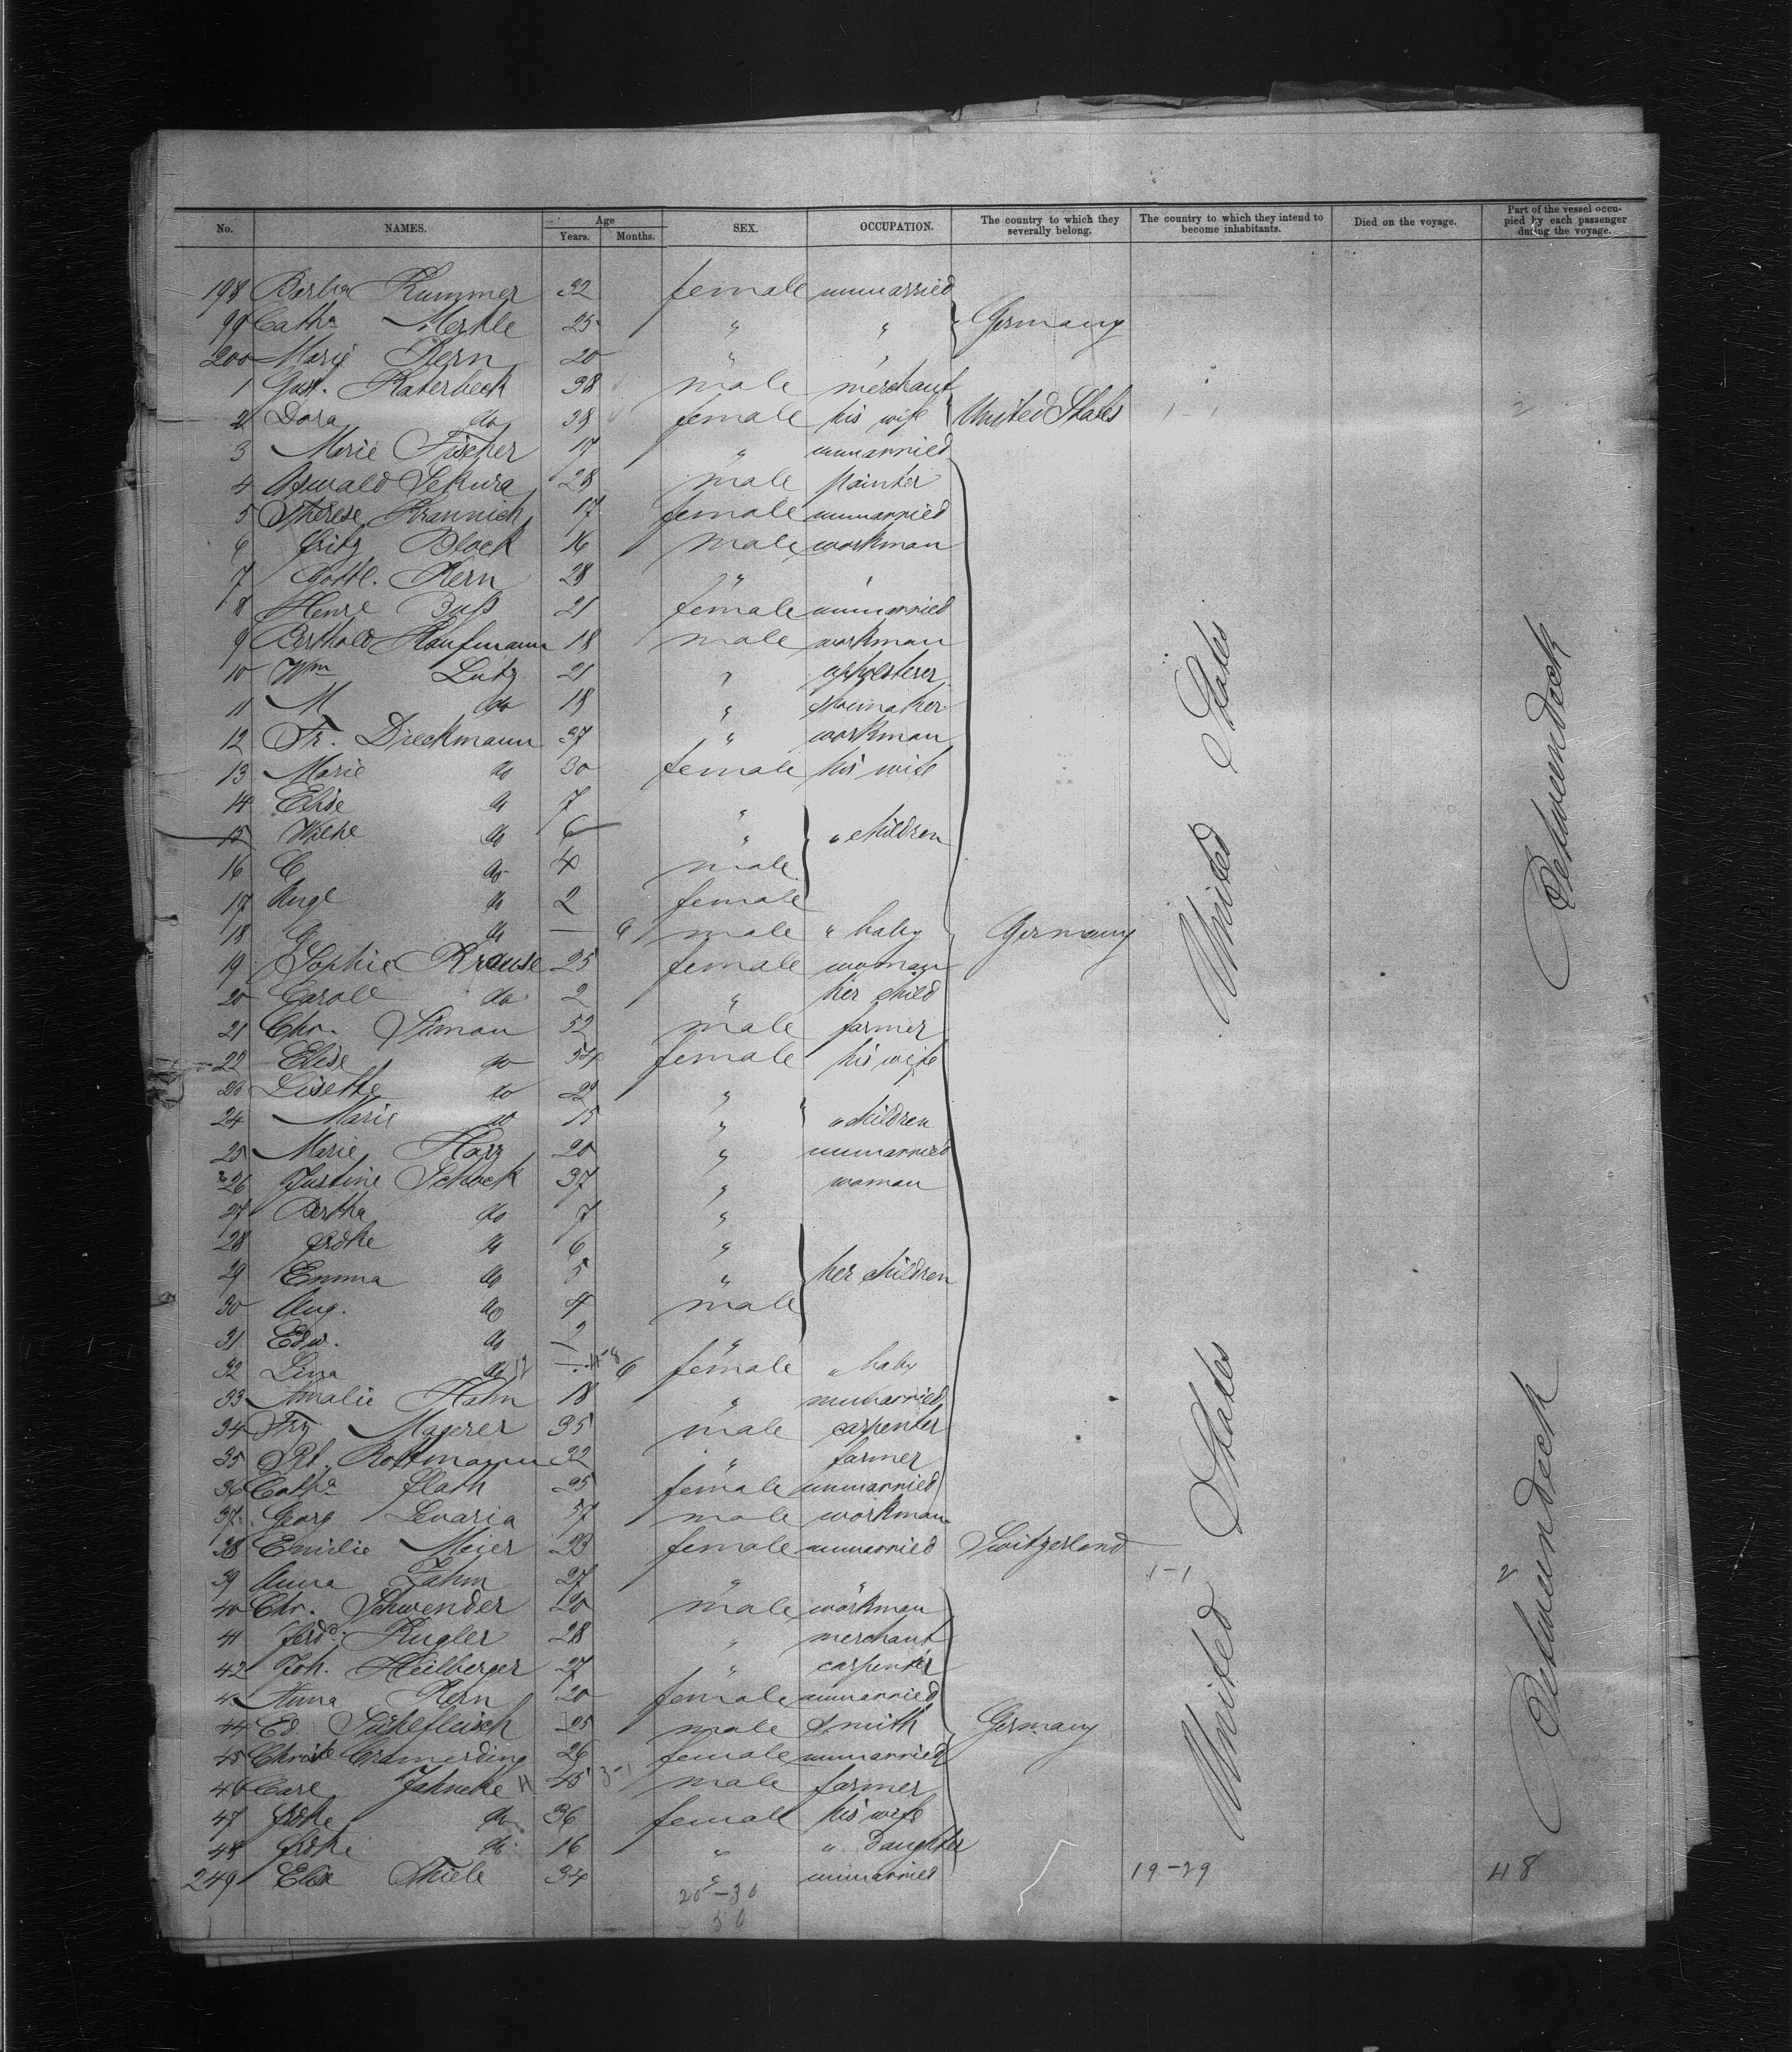 No. NAMES. Age Years. Months. SEX. OCCUPATION. The country to which they severally belong. The country to which they intend to become inhabitants. Died on the voyage. Part of the vessel occupied by each passenger during the voyage.
198 Barba Kummer 32 female unmarried
99 Catha Merkle 25 " " Germany
200 Marie Kern 20 " "
1 Gust. Katerbeck 38 male merchant
2 Dora do 38 female his wife United States 1-1 2
3 Marie Fischer 17 " unmarried
4 Oswald Sekura 28 male painter
5 Therese Krannich 17 female unmarried
6 Fritz Block 16 male workman
7 Gottl. Kern 28 " "
8 Henre Buß 21 female unmarried
9 Berthold Kaufmann 18 male workman
10 Wm Lutz 21 " upholsterer
11 M do 18 " shoemaker
12 Fr. Dieckmann 37 " workman
13 Marie do 30 female his wife
14 Elise do 7 "
15 Wilhe do 6 " " children
16 C do 4 male
17 Augt do 2 female
18 G do — 6 male " baby Germany United States Betweendeck
19 Sophie Krause 25 female woman
20 Caroll do 2 " her child
21 Chr. Simon 52 male farmer
22 Elise do 54 female his wife
23 Lisette do 22 "
24 Marie do 15 " " children
25 Marie Harz 20 " unmarried
26 Justine Schock 37 " woman
27 Bertha do 7 "
28 Fredke do 6 "
29 Emma do 5 " her children
30 Aug. do 4 male
31 Edw. do 2 "
32 Lina do — 6 female " baby
33 Amalie Hahn 18 " unmarried
34 Frz Magerer 35 male carpenter
35 Rottmann 22 " farmer
36 Catha Flath 25 female unmarried
37 Georg Levaria 57 male workman
38 Emilie Meier 23 female unmarried Switzerland
39 Anna Zahm 27 " " 1-1 2
40 Chr. Schwender 20 male workman
41 Ferdd. Kugler 28 " merchant
42 Joh. Heilberger 27 " carpenter
4 Anna Kern 20 female unmarried
44 Ed. Sühlfleisch 25 male Smith Germany United States Betweendeck
45 Christe Cramerding 26 female unmarried
46 Carl Jahncke 45 male farmer
47 Fredke do 36 female his wife
48 Fredke do 16 " " Daughter
249 Elise Thiele 34 " unmarried 19-29 48
20-30
50